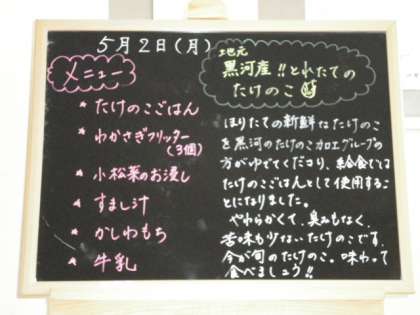 5月2日(月)
メニュー
* たけのこごはん
* わかさぎフリッター
(3個)
* 小松菜のお浸し
* すまし汁
* かしわもち
* 牛乳
地元
黒河産!!とれたての
たけのこ
ほりたての新鮮なたけのこ
を黒河のたけのこ加工グループの
方がゆでてくださり、給食では
たけのこごはんとして使用するこ
とになりました。
やわらかくて、臭みもなく、
苦味も少ないたけのこです。
今が旬のたけのこ。味わって
食べましょう!!